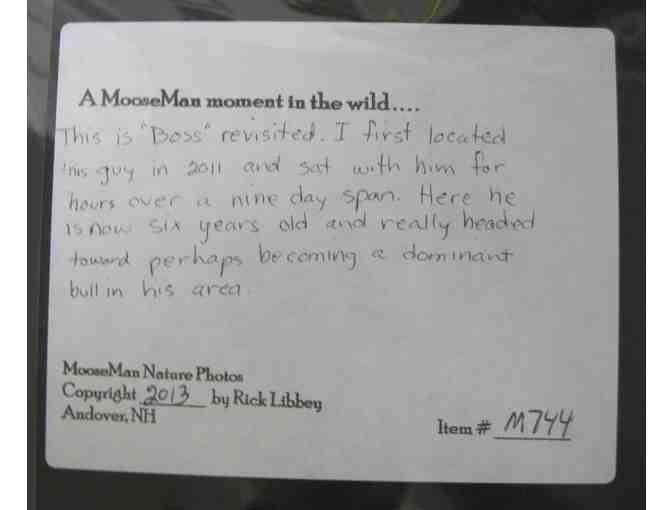 A MooseMan moment in the wild....
This is "Boss" revisited. I first located
this guy in 2011 and sat with him for
hours over a nine day span. Here he
is now six years old and really headed
toward perhaps becoming a dominant
bull in his area.
MooseMan Nature Photos
Copyright 2013 by Rick Libbey
Andover, NH
Item # M744